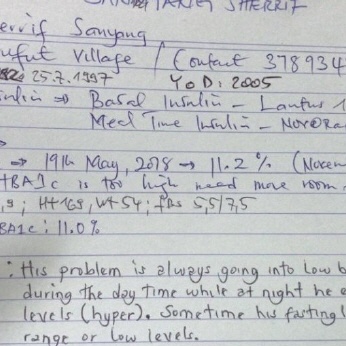 SHERRIF
Sanyang
Village / Contact 378934
25.7.1997 YOD: 2005
⇒ Basal Insulin - Lantus 1
Meal Time Insulin - NovoRa
⇒ 19th May, 2018 → 11.2% (Novem
HBA1c is too high need more room
, 9 ; Ht 169, Wt 54 ; fBs 5,5/7,5
BA1c: 11.0%
: His problem is always going into low b
during the day time while at night he e
levels (hyper). Sometime his fasting l
range or low levels.